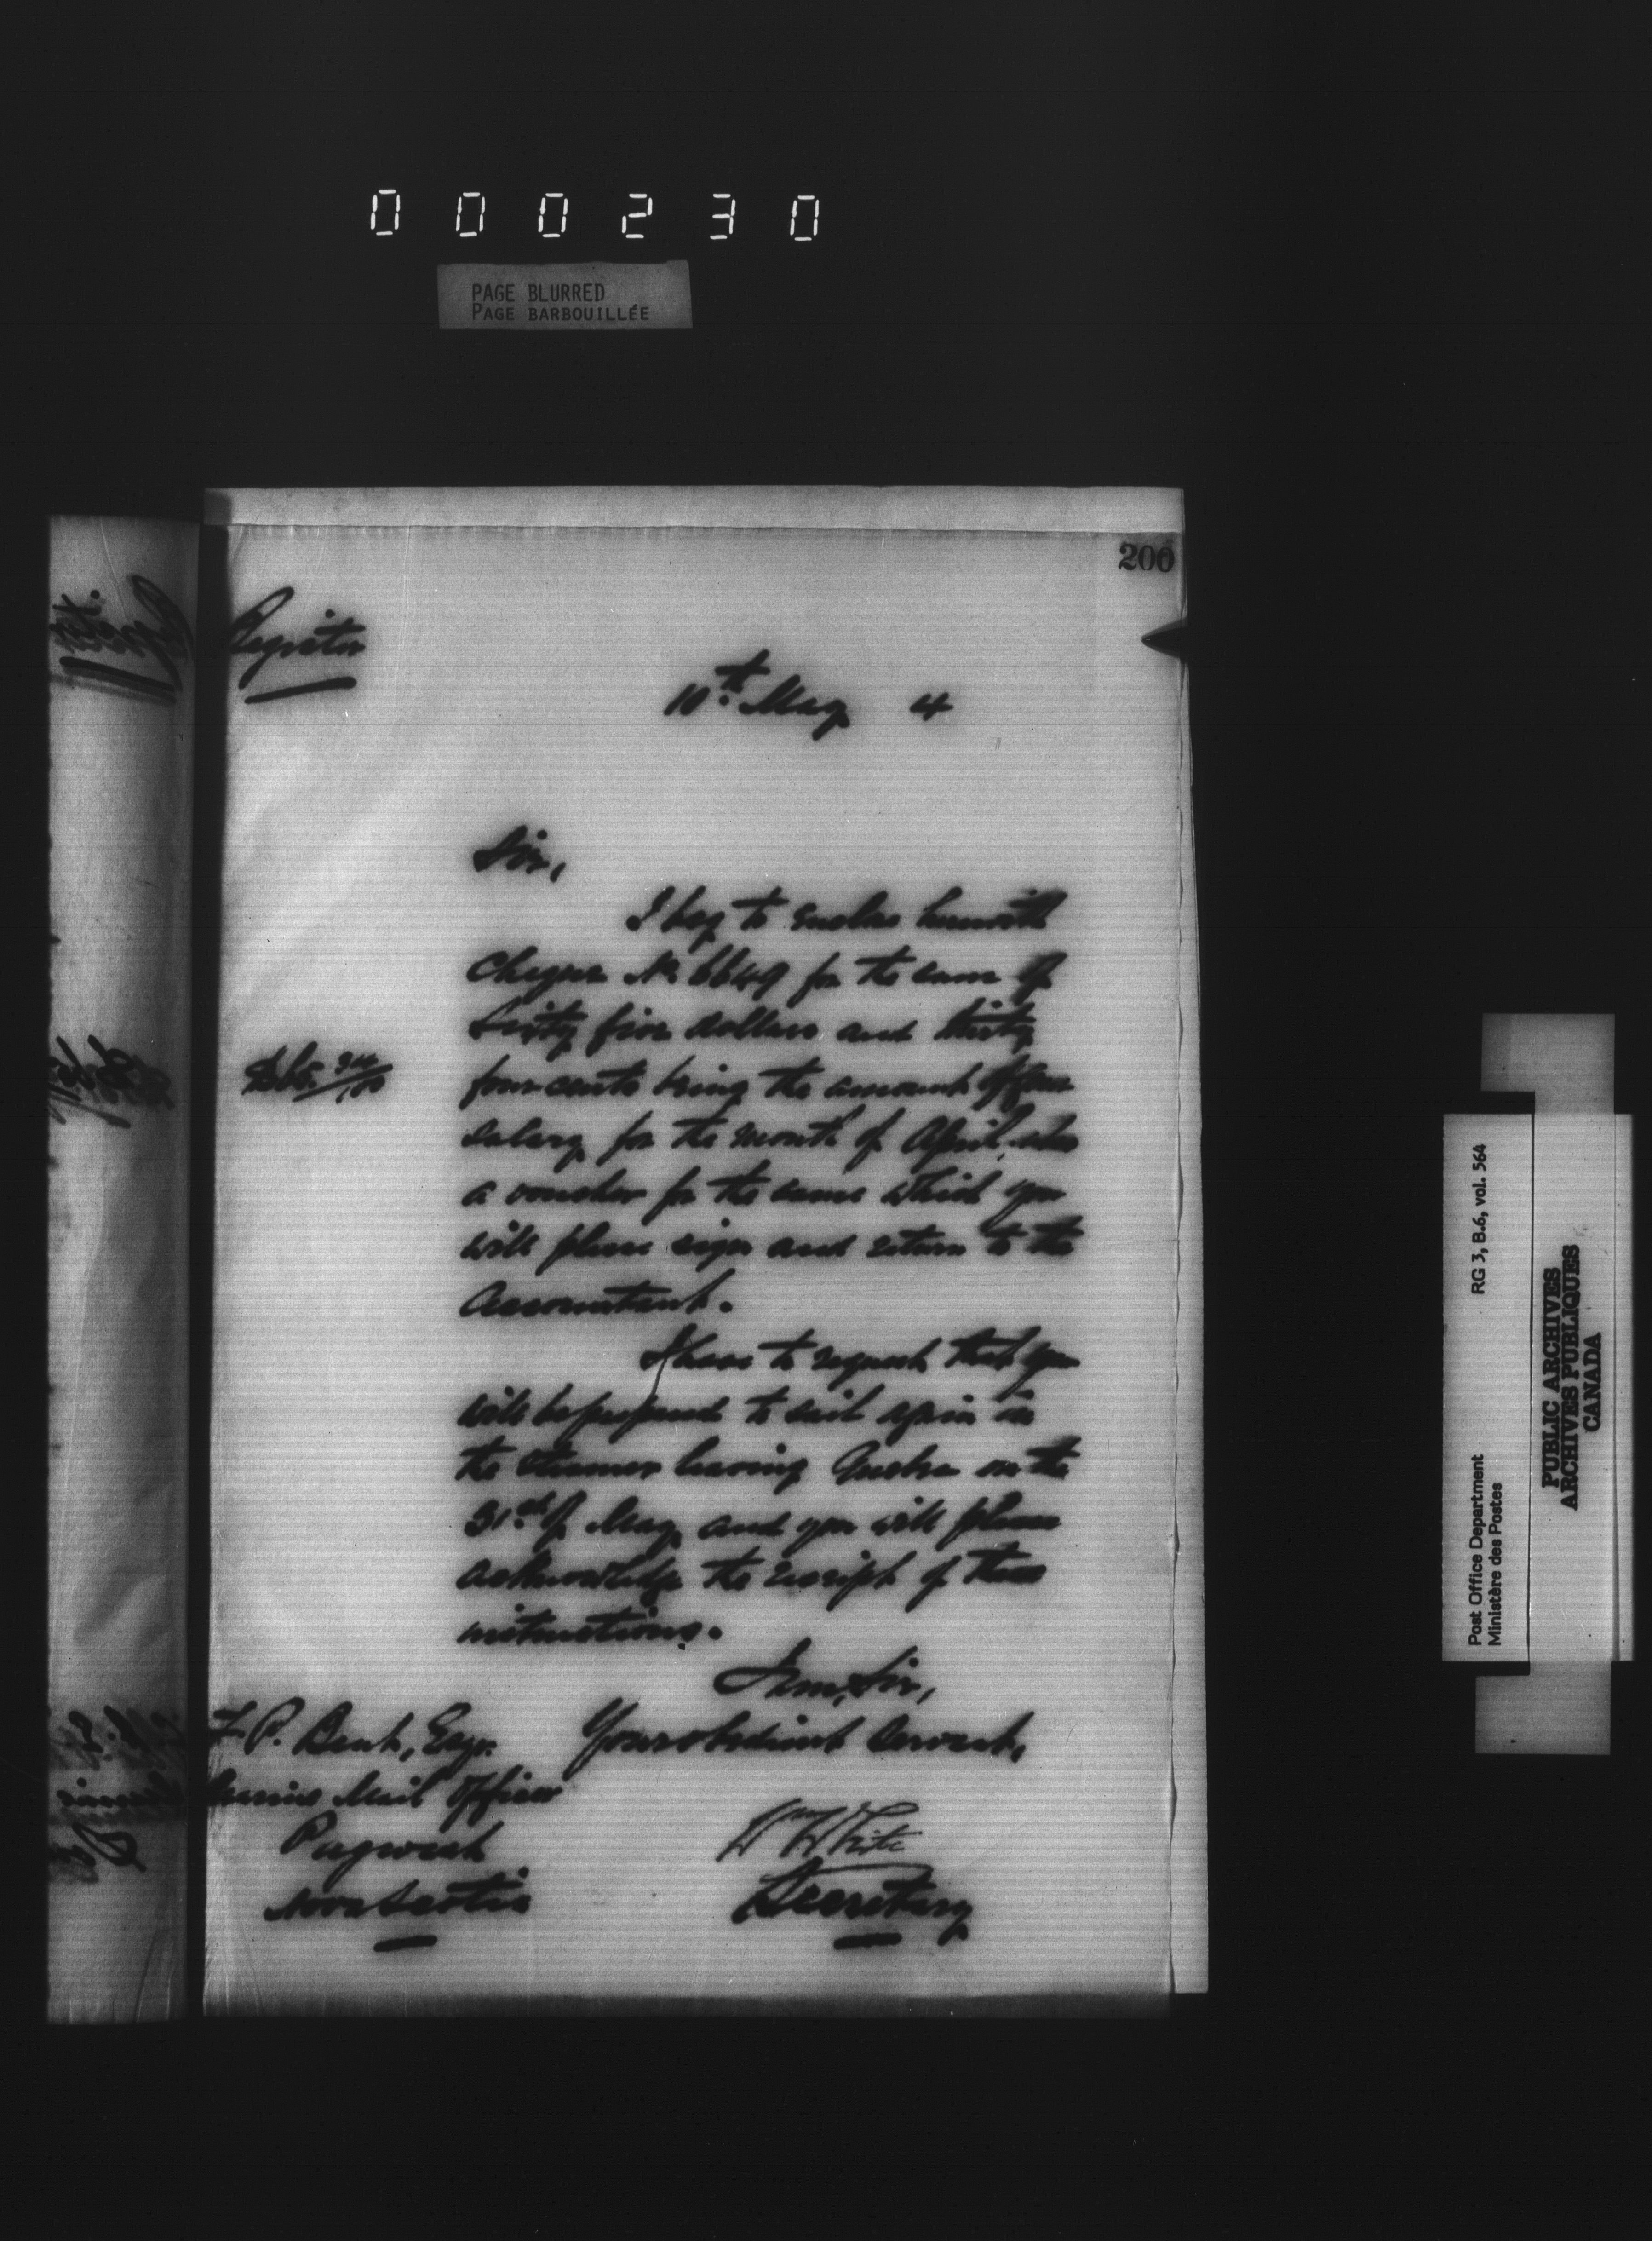 000230
PAGE BLURRED
PAGE BARBOUILLÉE
200
Register
10th. May 4
Sir,
I beg to enclose herewith
Cheque No. 6649 for the sum of
Sixty five dollars and thirty
$65. 34/100
four cents being the amount of your
salary for the month of April, also
a voucher for the same which you
will please sign and return to the
Accountant.
I have to request that you
will be prepared to sail again in
the steamer leaving Quebec on the
31st. of May and you will please
acknowledge the receipt of these
instructions.
I am, Sir,
Your obedient Servant,
F. P. Bent, Esqr.
Marine Mail Officer
Pugwash
Nova Scotia
Wm White
Secretary
Post Office Department
Ministère des Postes
RG 3, B.6, vol. 564
PUBLIC ARCHIVES
ARCHIVES PUBLIQUES
CANADA